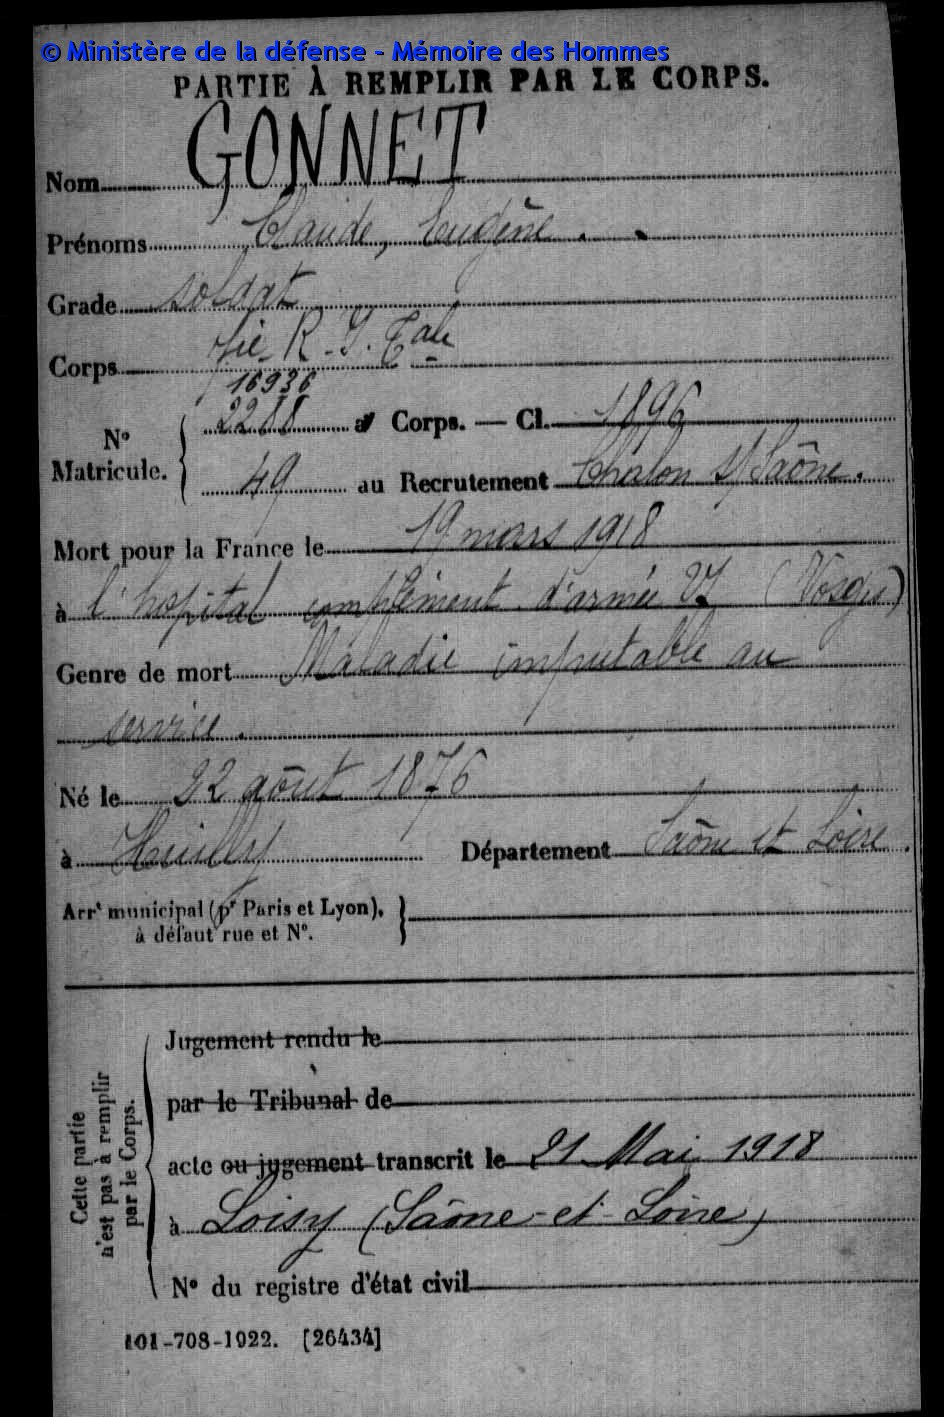 © Ministère de la défense - Mémoire des Hommes
PARTIE À REMPLIR PAR LE CORPS.
Nom GONNET
Prénoms Claude, Eugène.
Grade soldat
Corps R. I. Cale
16936
2288 au Corps. — Cl. 1896
No Matricule.
49 au Recrutement Chalon s/ Saône.
Mort pour la France le 19 mars 1918
à l'hopital complément d'armée (Vosges)
Genre de mort Maladie imputable au
service.
Né le 22 aôut 1876
à Huilly Département Saône et Loire.
Arrt municipal (pr Paris et Lyon),
à défaut rue et No.
Cette partie
n'est pas à remplir
par le Corps.
Jugement rendu le
par le Tribunal de
acte ou jugement transcrit le 21 Mai 1918
à Loisy (Saône-et-Loire)
No du registre d'état civil
101-708-1922. [26434]